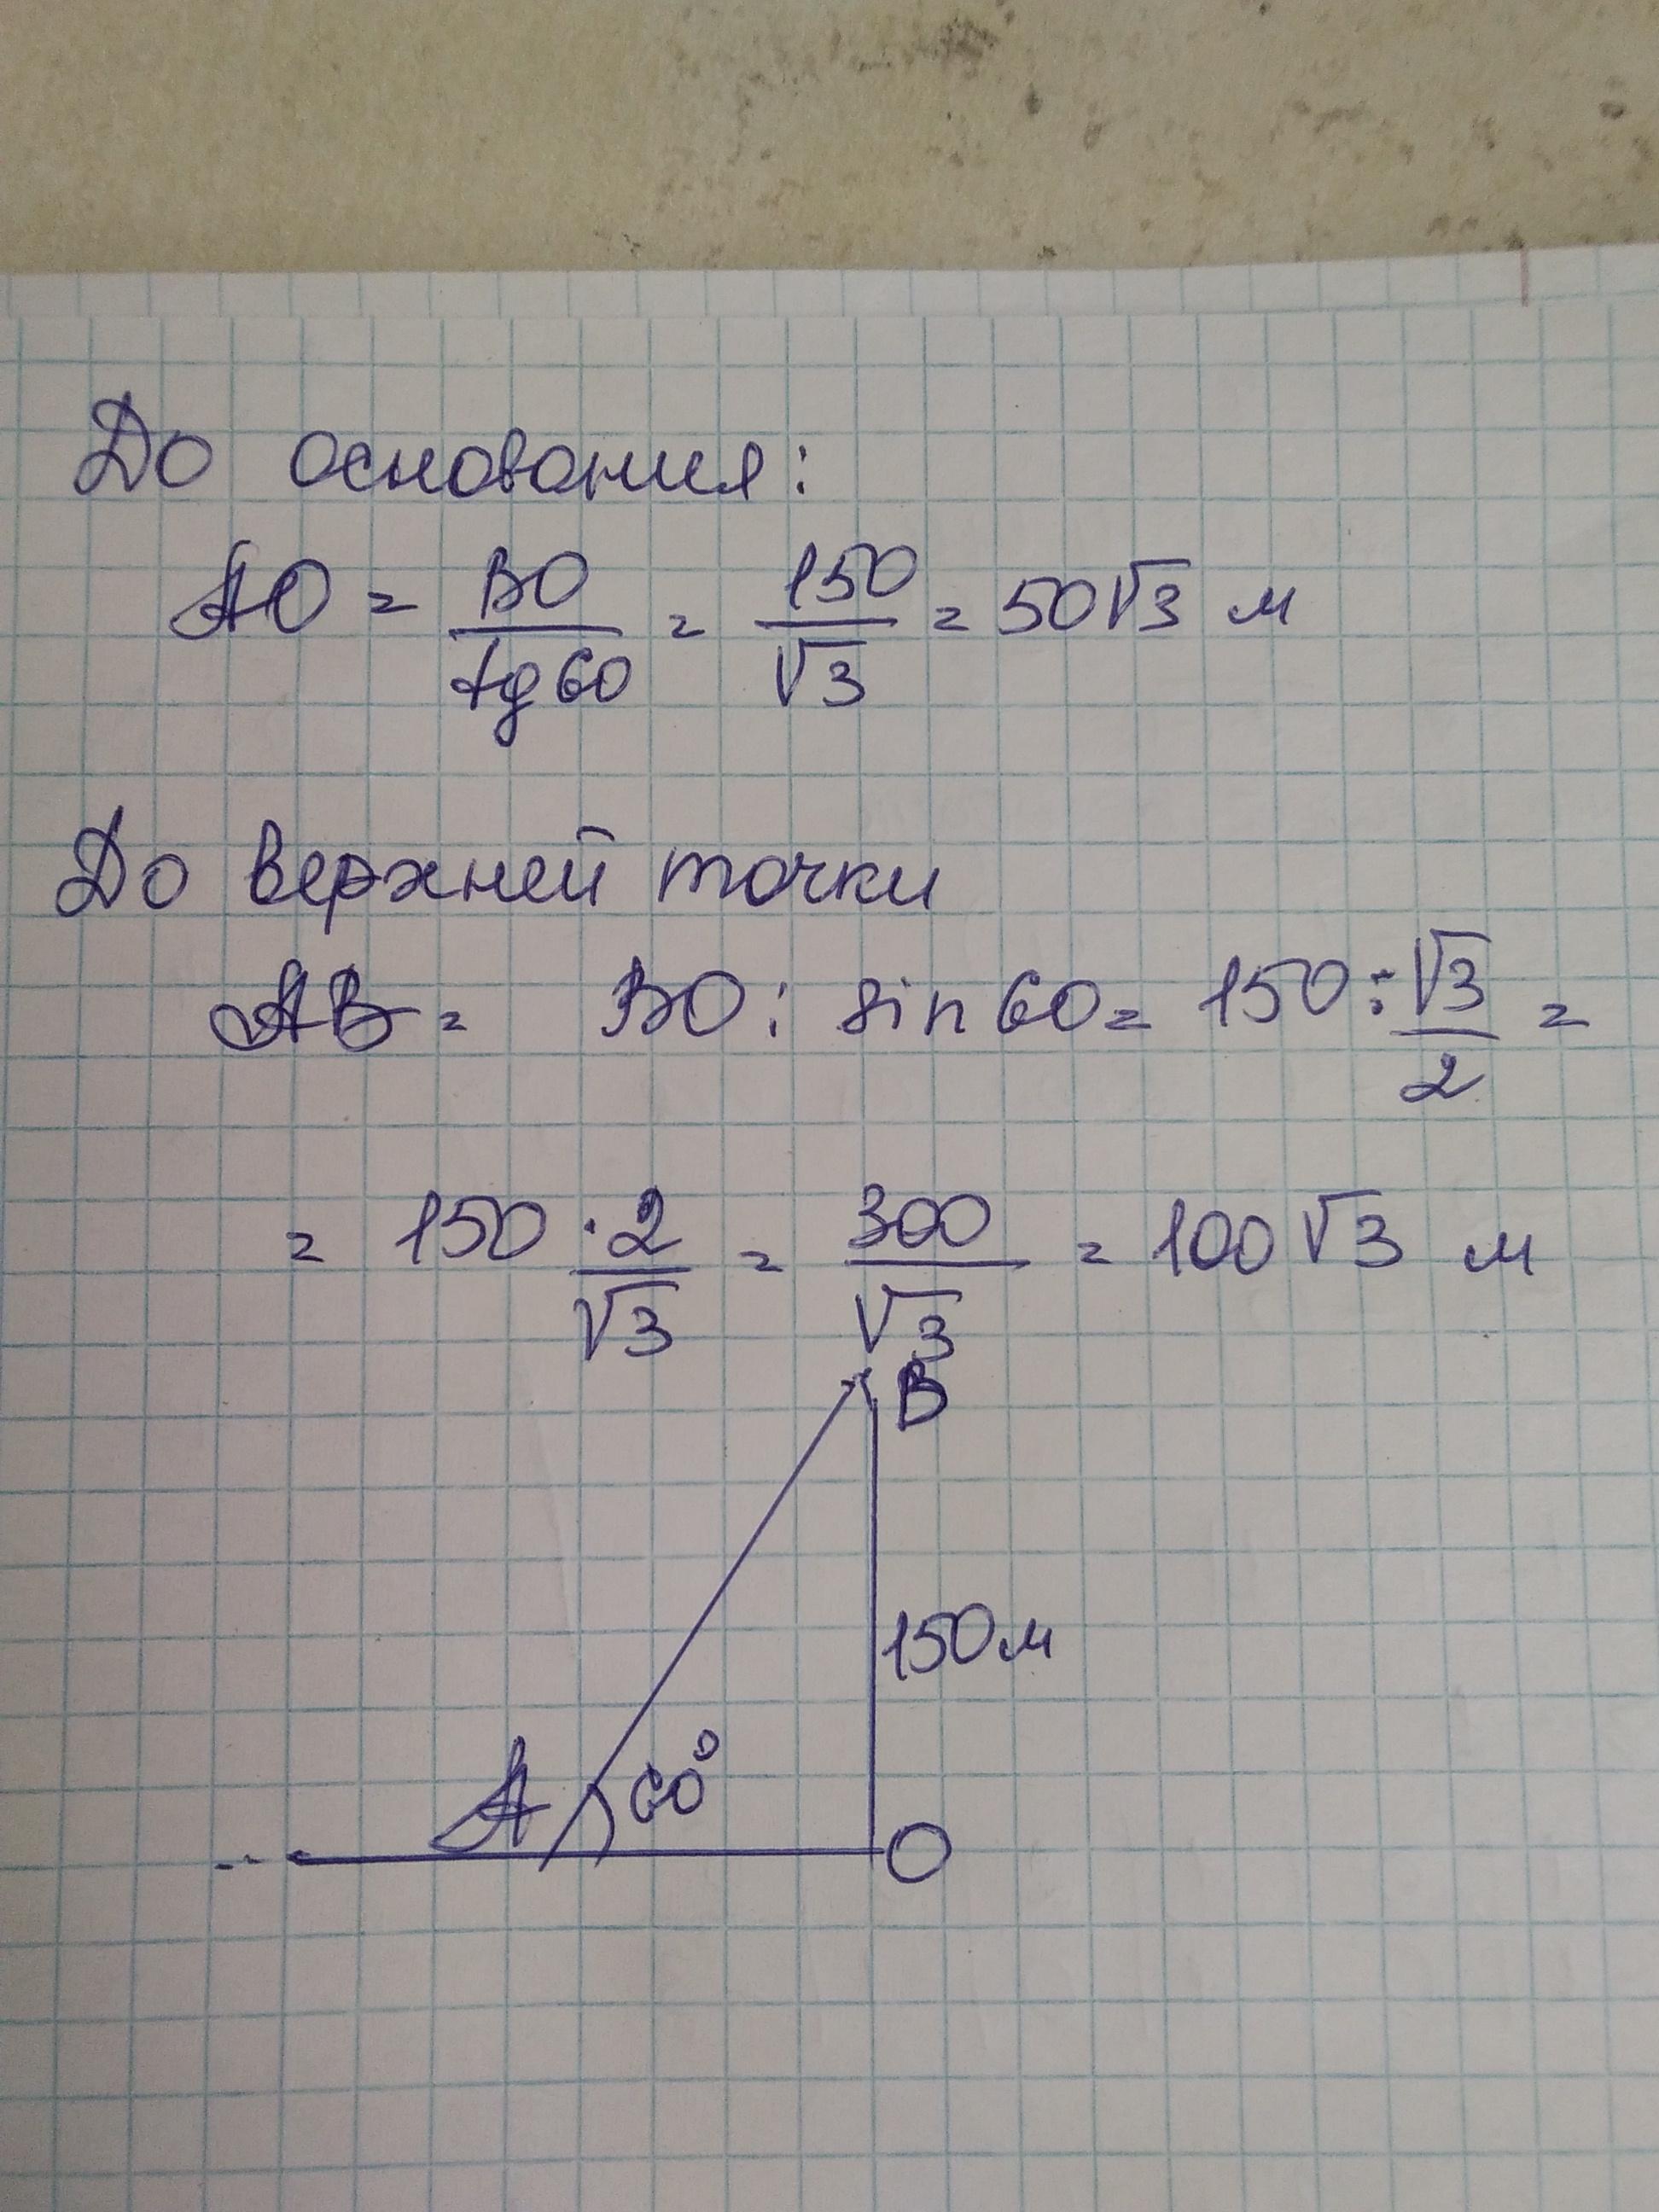 До основания:
AO = BO/tg60 = 150/√3 = 50√3 м
До верхней точки
AB = BO : sin60 = 150 : √3/2 =
= 150 · 2/√3 = 300/√3 = 100√3 м
B
150м
A 60°
O